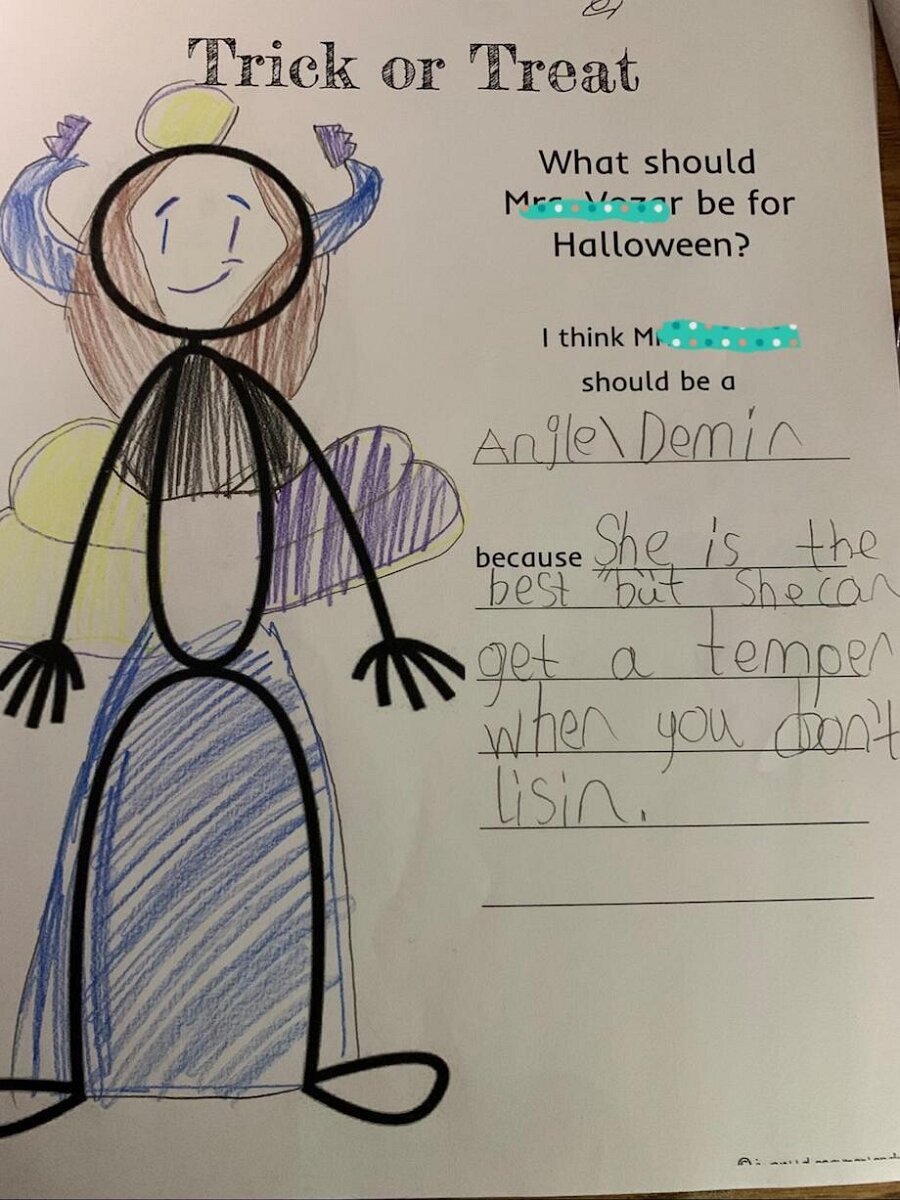 Trick or Treat
What should
be for
Halloween?
I think
should be a
Anjle\Demin
because She is the
best "but She can
get a temper
when you don't
lisin.